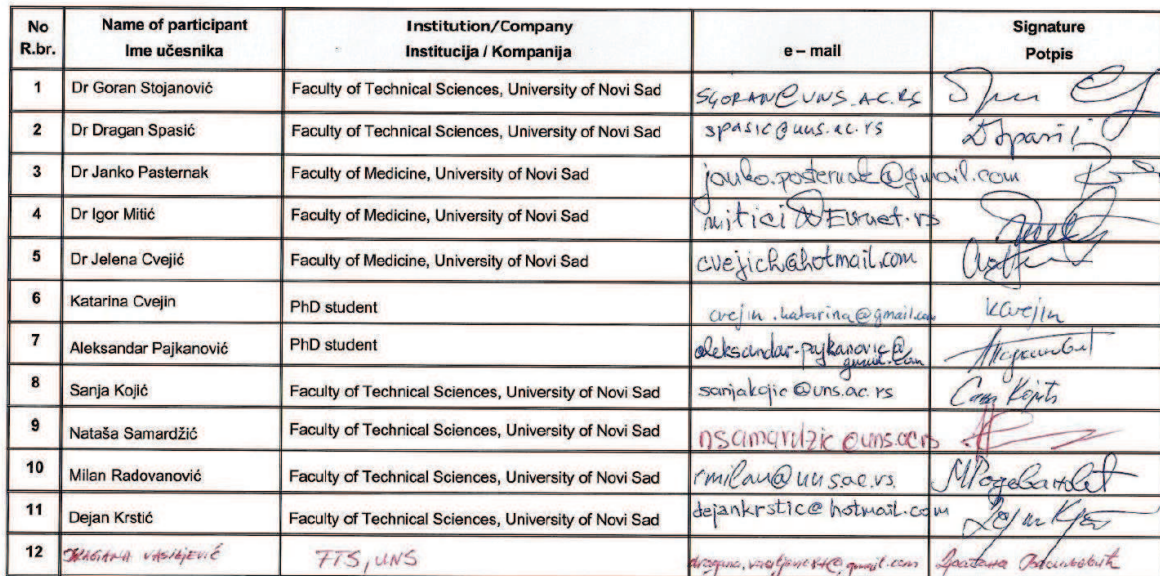 No Name of participant Institution/Company e – mail Signature
R.br. Ime učesnika Institucija / Kompanija Potpis
1 Dr Goran Stojanović Faculty of Technical Sciences, University of Novi Sad SGORAN@UNS.AC.RS
2 Dr Dragan Spasić Faculty of Technical Sciences, University of Novi Sad spasic@uns.ac.rs DSpasić
3 Dr Janko Pasternak Faculty of Medicine, University of Novi Sad janko.pasternak@gmail.com
4 Dr Igor Mitić Faculty of Medicine, University of Novi Sad mitici@EUnet.rs
5 Dr Jelena Cvejić Faculty of Medicine, University of Novi Sad cvejich@hotmail.com
6 Katarina Cvejin PhD student cvejin.katarina@gmail.com KCvejin
7 Aleksandar Pajkanović PhD student aleksandar.pajkanovic@
gmail.com
8 Sanja Kojić Faculty of Technical Sciences, University of Novi Sad sanjakojic@uns.ac.rs
9 Nataša Samardžić Faculty of Technical Sciences, University of Novi Sad nsamardzic@uns.ac.rs
10 Milan Radovanović Faculty of Technical Sciences, University of Novi Sad rmilan@uns.ac.rs
11 Dejan Krstić Faculty of Technical Sciences, University of Novi Sad dejankrstic@hotmail.com
12 DRAGANA VASILJEVIĆ FTS, UNS